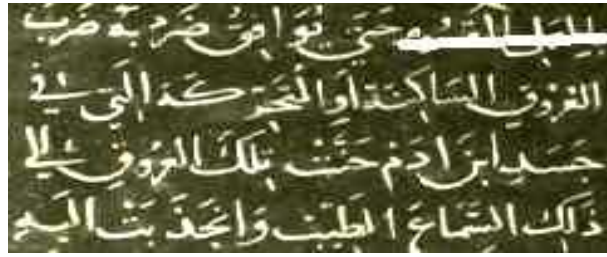 حَتَّى يُوَافِقُ ضَرْبَةُ ضَرْبَ
العُرُوقِ السَّاكِنَةِ اَوِ المُتَحَرِّكَةِ الَّتِي فِي
جَسَدِ ابْنِ ادَمَ حَنَّتْ تِلْكَ العُرُوقُ اِلَى
ذَلِكَ السَّمَاعِ الطَيِّبِ وَانجَذَبَتْ اليهِ